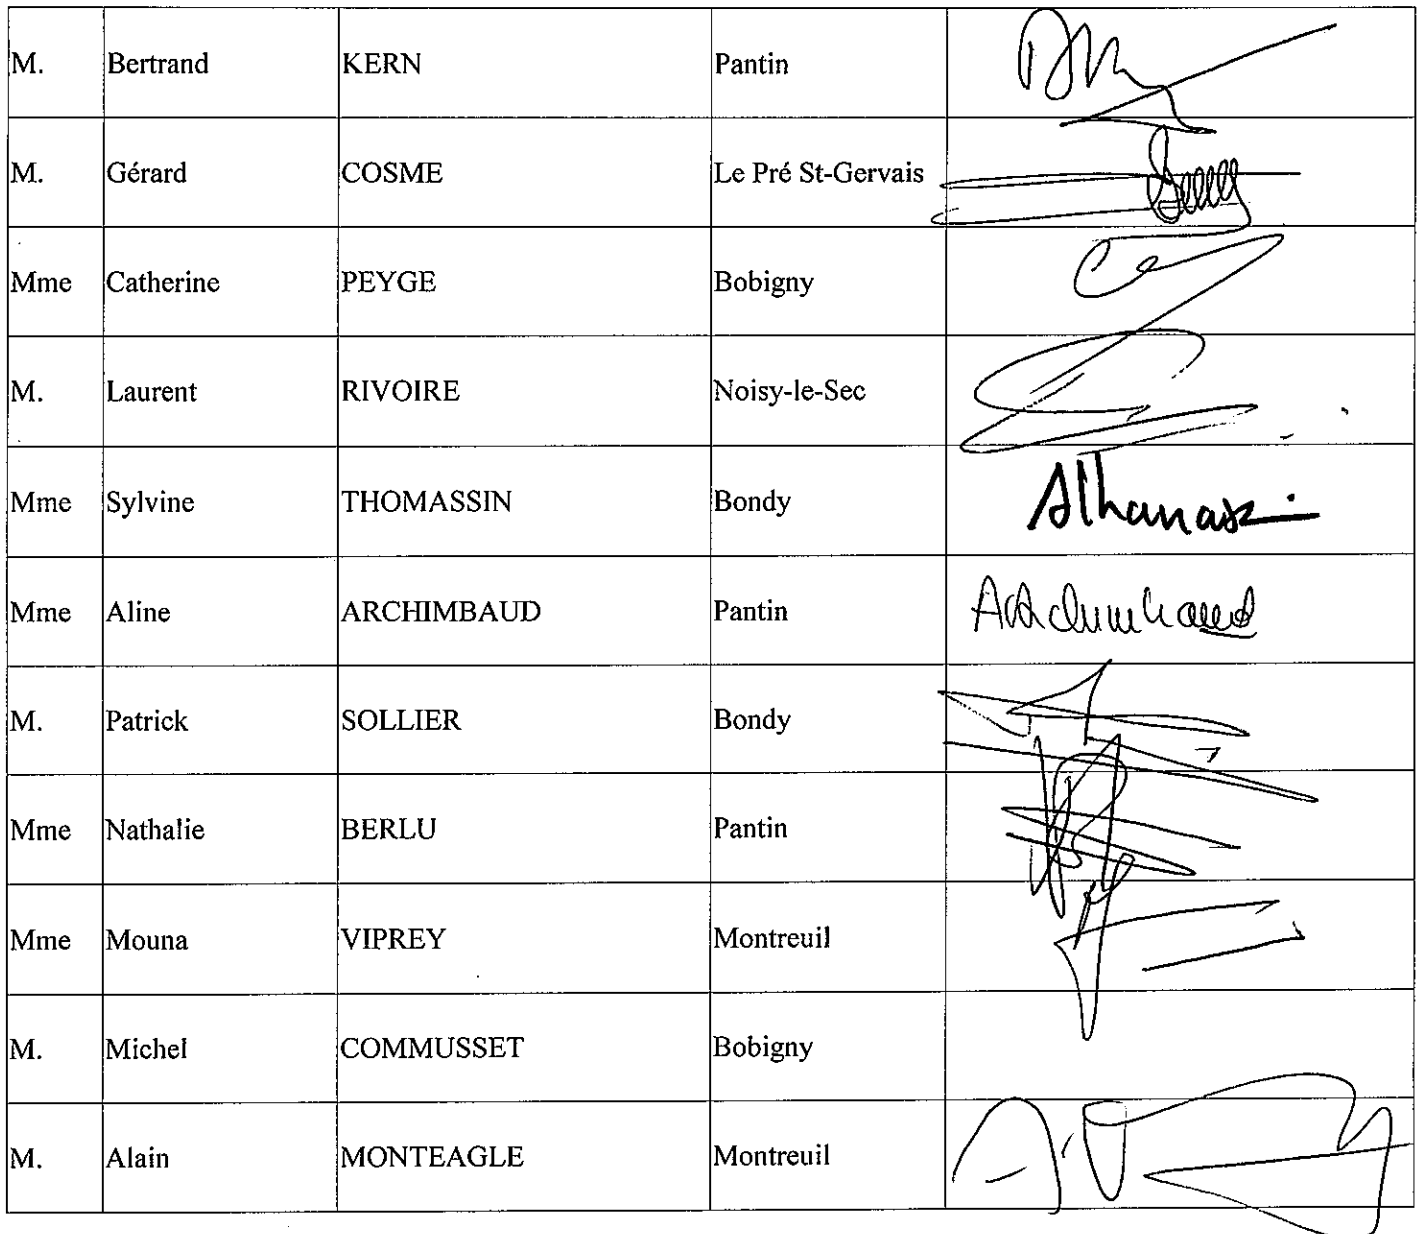 M. Bertrand KERN Pantin
M. Gérard COSME Le Pré St-Gervais
Mme Catherine PEYGE Bobigny
M. Laurent RIVOIRE Noisy-le-Sec
Mme Sylvine THOMASSIN Bondy
Mme Aline ARCHIMBAUD Pantin Archimbaud
M. Patrick SOLLIER Bondy
Mme Nathalie BERLU Pantin
Mme Mouna VIPREY Montreuil
M. Michel COMMUSSET Bobigny
M. Alain MONTEAGLE Montreuil